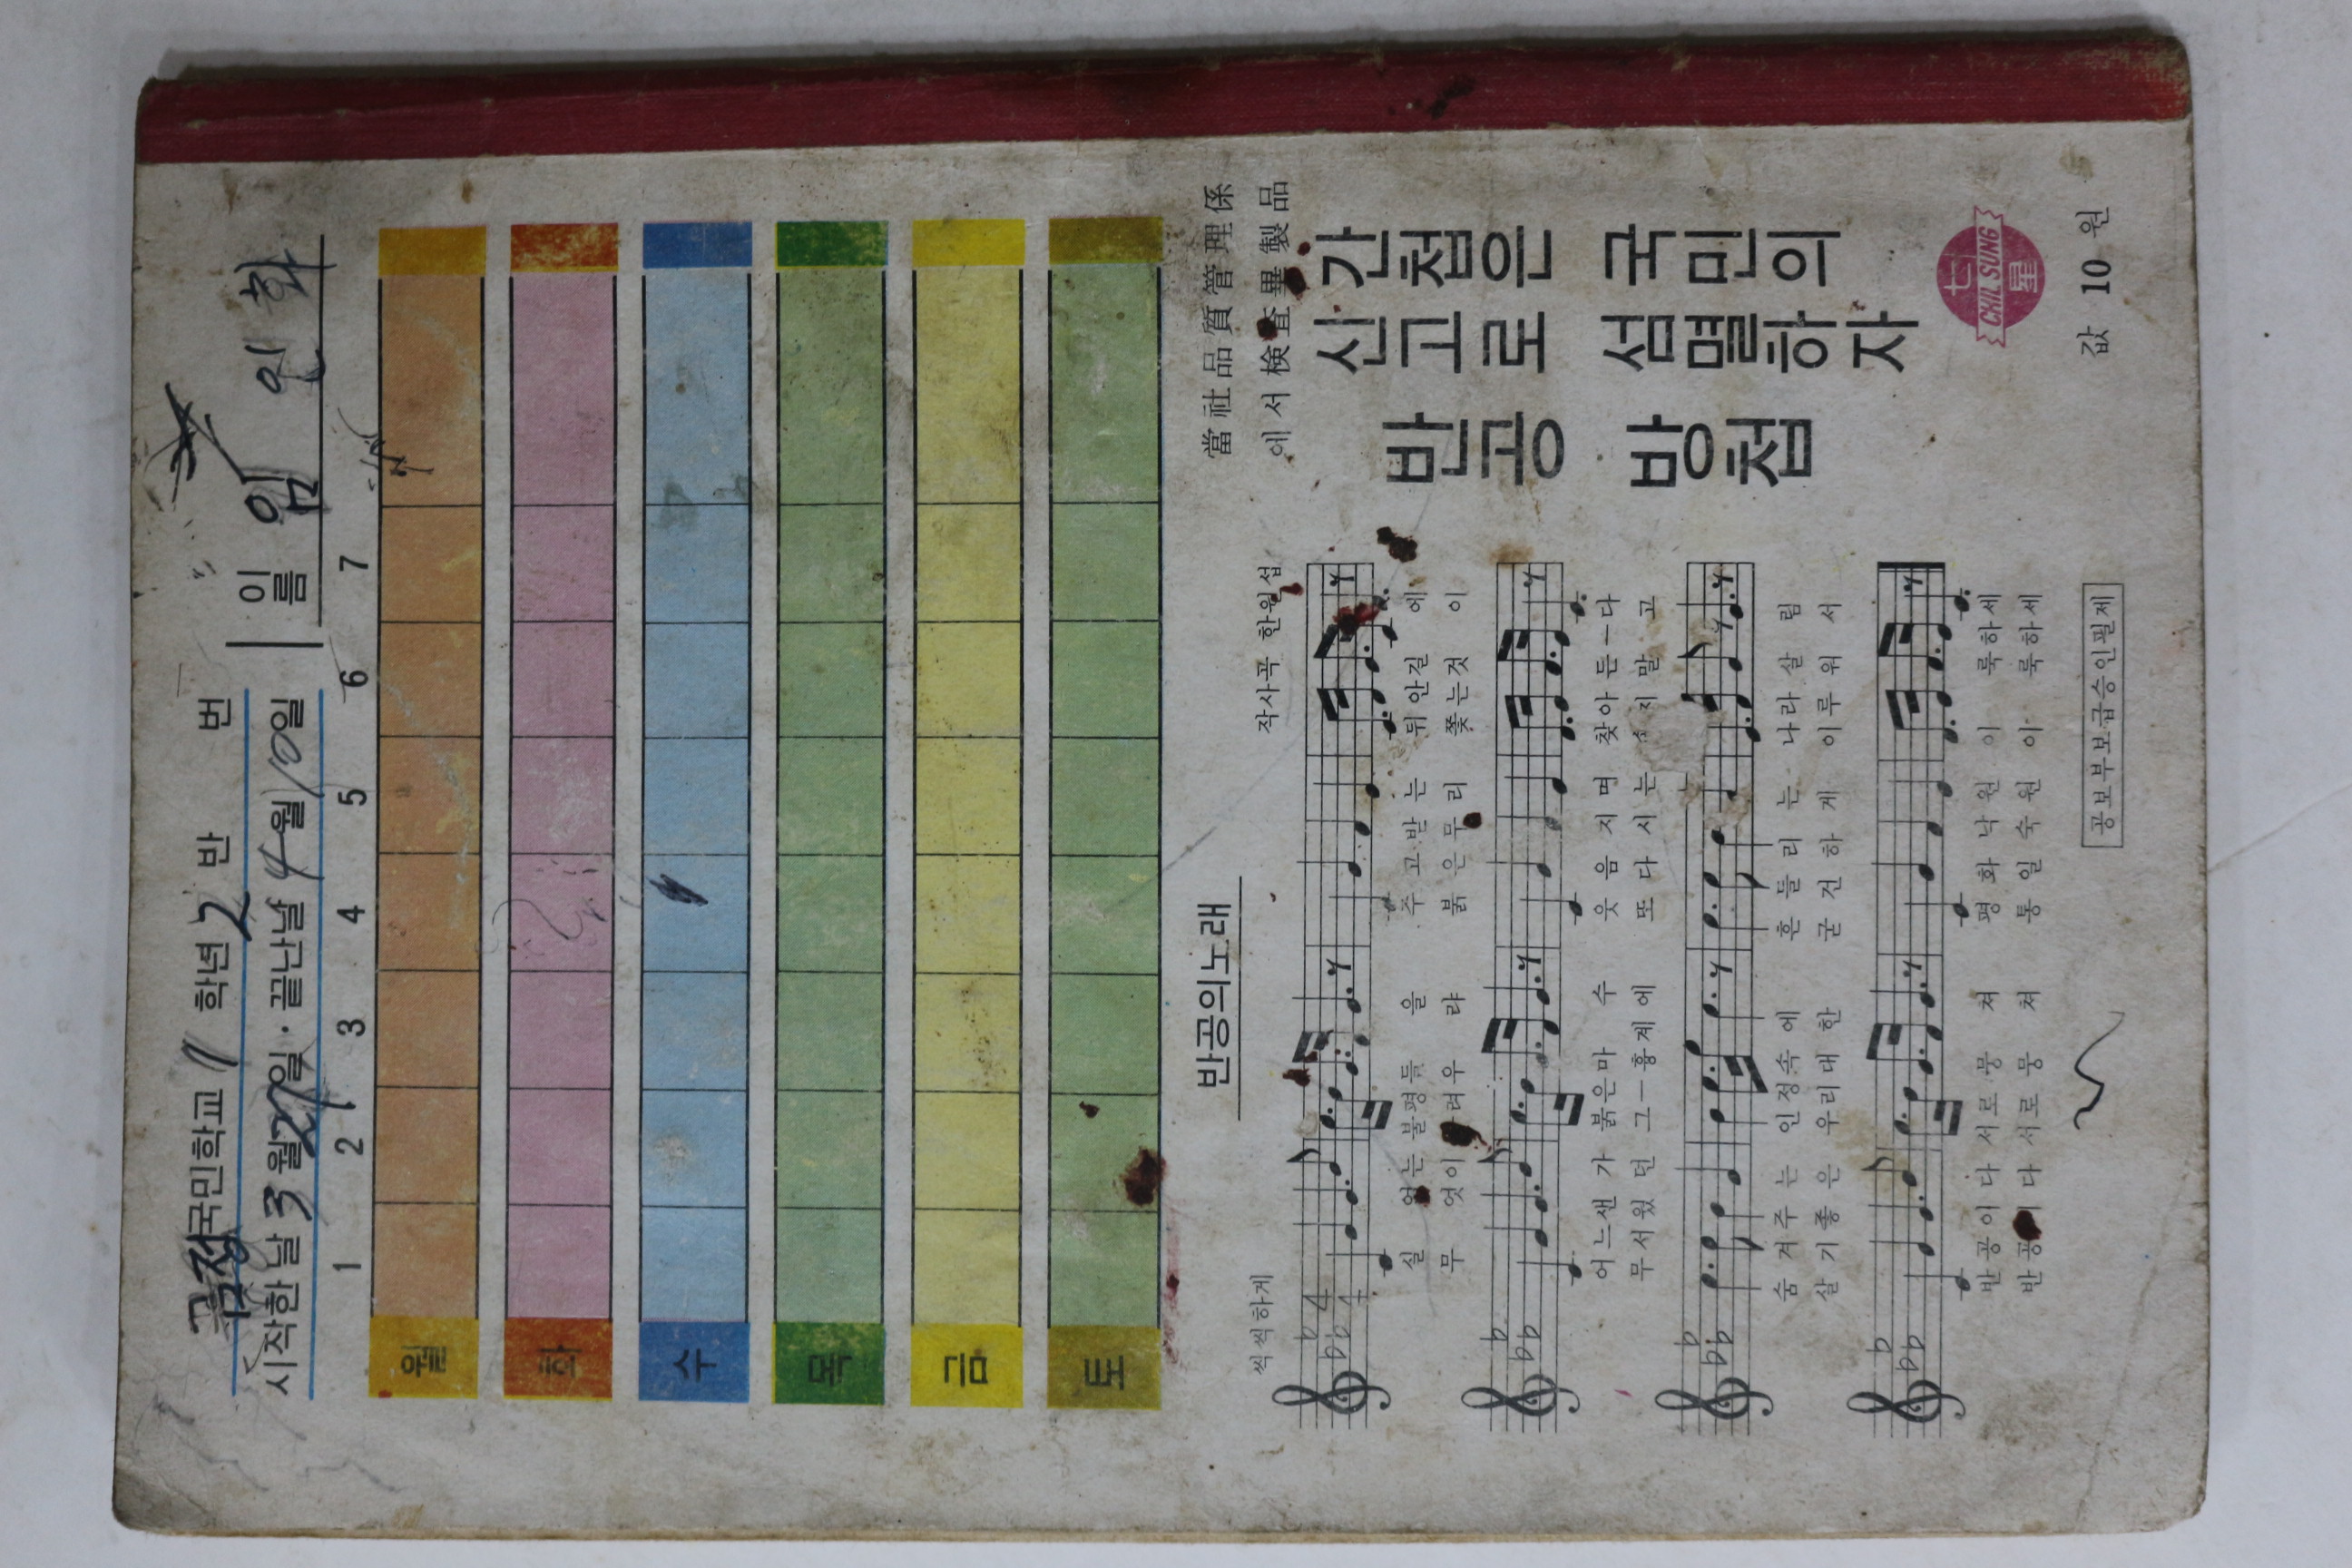 국민학교 11 학년 2 반 번
시작한날 3월 27일 · 끝난날 4월 10일
이름 임인화
1 2 3 4 5 6 7
월
화
수
목
금
토
반공의노래
씩씩하게
작사곡 한원섭
실 없는 불평들 을 주고받 는 뒤안길 에
무 엇이 려우 랴 붉은무 리 쫓는것 이
어느샌 가 붉은마 수 웃음지 며 찾아든—다
무서웠 던 그—흉계에 또다시 는 지말 고
숨겨주 는 인정속에 흔들리 는 나라살 림
살기좋 은 우리대한 굳건하 게 이루워 서
반공이 다 서로뭉 쳐 평화낙 원 이 룩하세
반공이 다 서로뭉 쳐 통일숙 원 이 룩하세
공보부보급승인필제
當社品質管理係
에서 検査畢製品
반공 방첩
간첩은 국민의
신고로 섬멸하자
七星
CHIL SUNG
값 10 원